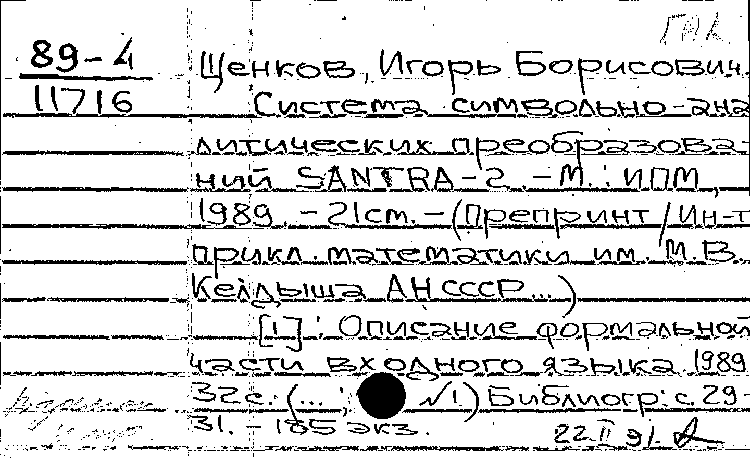 89-4
11716
Щенков, Игорь Борисович.
Система символьно-ана
литических преобразова-
ний SANTRA-2. - М.: ИПМ,
1989. - 21см. - (Препринт/Ин-т
прикл. математики им. М.В.
Келдыша АН СССР...)
[1]: Описание формальной
части входного языка. 1989
32с. (...; №1) Библиогр.: с. 29-
31. - 185 экз.
22 II 91.